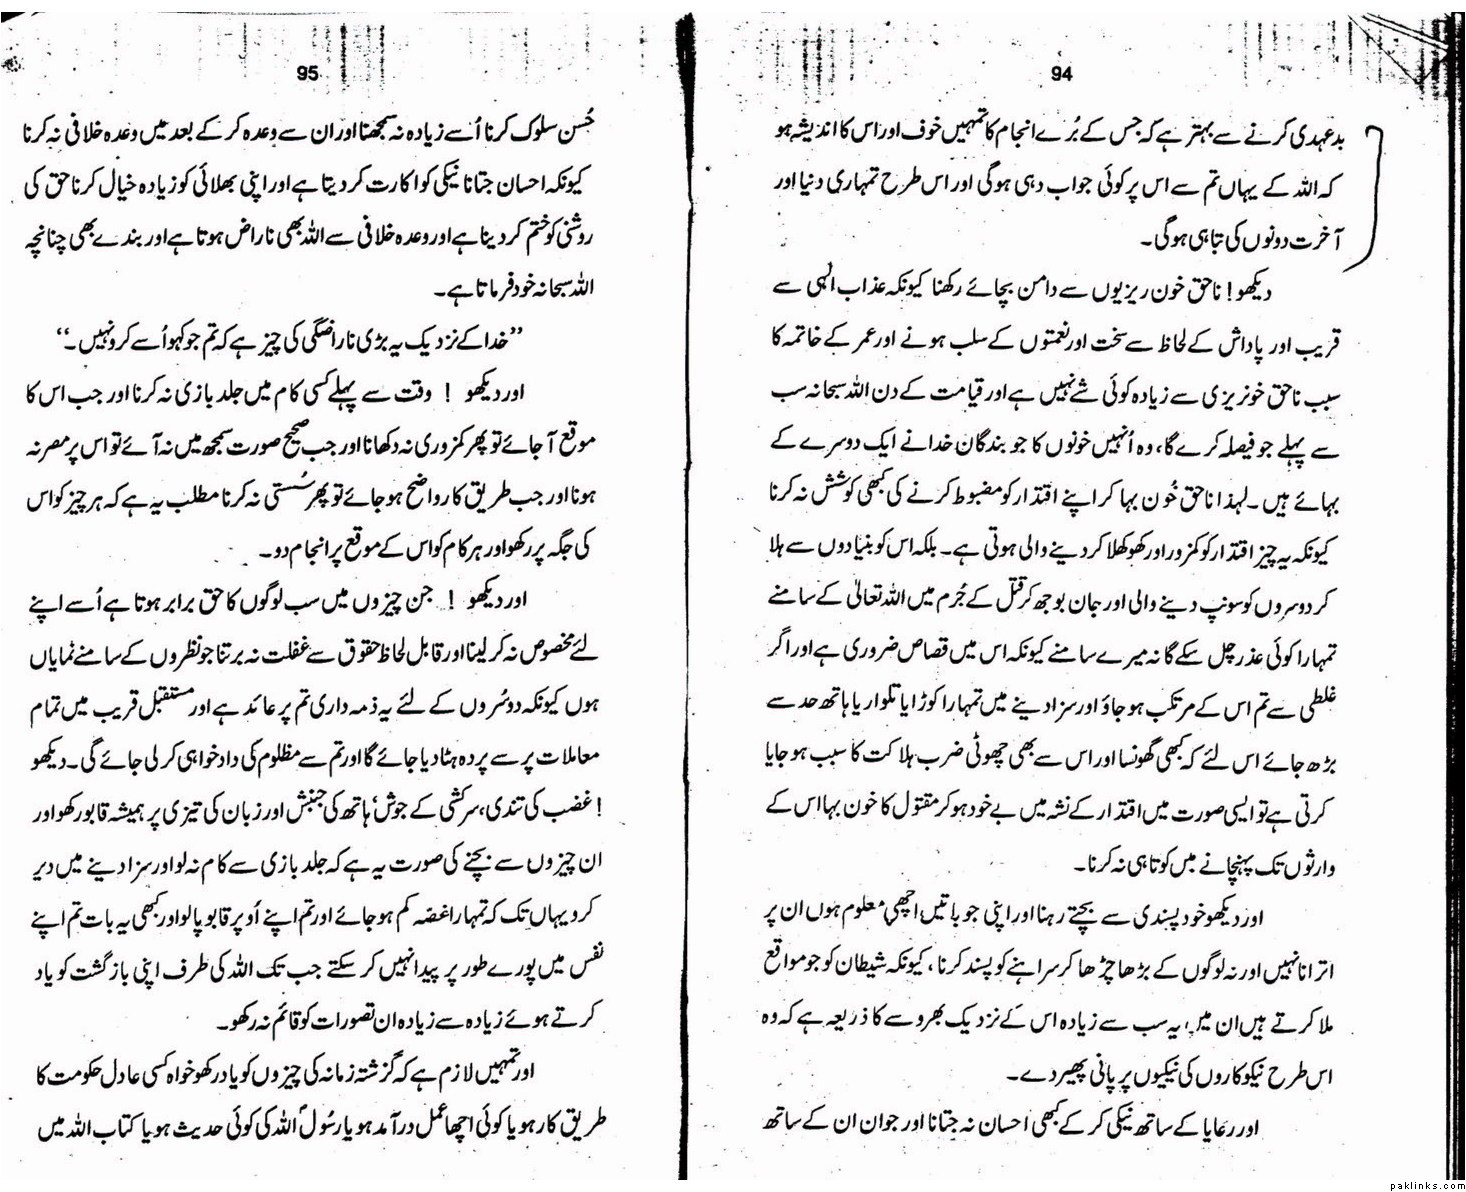 94
بدعہدی کرنے سے بہتر ہے کہ جس کے بُرے انجام کا تمہیں خوف اور اس کا اندیشہ ہو
کہ اللہ کے یہاں تم سے اس پر کوئی جواب دہی ہوگی اور اس طرح تمہاری دنیا اور
آخرت دونوں کی تباہی ہوگی۔
دیکھو! ناحق خون ریزیوں سے دامن بچائے رکھنا کیونکہ عذاب الٰہی سے
قریب اور پاداش کے لحاظ سے سخت اور نعمتوں کے سلب ہونے اور عمر کے خاتمہ کا
سبب ناحق خونریزی سے زیادہ کوئی شے نہیں ہے اور قیامت کے دن اللہ سبحانہ سب
سے پہلے جو فیصلہ کرے گا، وہ اُنہیں خونوں کا جو بندگان خدا نے ایک دوسرے کے
بہائے ہیں۔ لہذا ناحق خُون بہا کر اپنے اقتدار کو مضبوط کرنے کی کبھی کوشش نہ کرنا
کیونکہ یہ چیز اقتدار کو کمزور اور کھوکھلا کر دینے والی ہوتی ہے۔ بلکہ اس کو بنیادوں سے ہلا
کر دوسروں کو سونپ دینے والی اور جان بوجھ کر قتل کے جُرم میں اللہ تعالیٰ کے سامنے
تمہارا کوئی عذر چل سکے گا نہ میرے سامنے کیونکہ اس میں قصاص ضروری ہے اور اگر
غلطی سے تم اس کے مرتکب ہو جاؤ اور سزا دینے میں تمہارا کوڑا یا تلوار یا ہاتھ حد سے
بڑھ جائے اس لئے کہ کبھی گھونسا اور اس سے بھی چھوٹی ضرب ہلاکت کا سبب ہو جایا
کرتی ہے تو ایسی صورت میں اقتدار کے نشہ میں بے خود ہو کر مقتول کا خون بہا اس کے
وارثوں تک پہنچانے میں کوتاہی نہ کرنا۔
اور دیکھو خود پسندی سے بچتے رہنا اور اپنی جو باتیں اچھی معلوم ہوں ان پر
اترانا نہیں اور نہ لوگوں کے بڑھا چڑھا کر سراہنے کو پسند کرنا، کیونکہ شیطان کو جو مواقع
ملا کرتے ہیں ان میں، یہ سب سے زیادہ اس کے نزدیک بھروسے کا ذریعہ ہے کہ وہ
اس طرح نیکوکاروں کی نیکیوں پر پانی پھیر دے۔
اور رعایا کے ساتھ نیکی کر کے کبھی احسان نہ جتانا اور جو ان ان کے ساتھ
95
حُسن سلوک کرنا اُسے زیادہ نہ سمجھنا اور ان سے وعدہ کر کے بعد میں وعدہ خلافی نہ کرنا
کیونکہ احسان جتانا نیکی کو اکارت کر دیتا ہے اور اپنی بھلائی کو زیادہ خیال کرنا حق کی
روشنی کو ختم کر دینا ہے اور وعدہ خلافی سے اللہ بھی ناراض ہوتا ہے اور بندے بھی چنانچہ
اللہ سبحانہ خود فرماتا ہے۔
”خدا کے نزدیک یہ بڑی ناراضگی کی چیز ہے کہ تم جو کہو اُسے کرو نہیں۔“
اور دیکھو ! وقت سے پہلے کسی کام میں جلد بازی نہ کرنا اور جب اس کا
موقع آجائے تو پھر کمزوری نہ دکھانا اور جب صحیح صورت سمجھ میں نہ آئے تو اس پر مصر نہ
ہونا اور جب طریق کار واضح ہو جائے تو پھر سُستی نہ کرنا مطلب یہ ہے کہ ہر چیز کو اس
کی جگہ پر رکھو اور ہر کام کو اس کے موقع پر انجام دو۔
اور دیکھو ! جن چیزوں میں سب لوگوں کا حق برابر ہوتا ہے اُسے اپنے
لئے مخصوص نہ کر لینا اور قابل لحاظ حقوق سے غفلت نہ برتنا جو نظروں کے سامنے نمایاں
ہوں کیونکہ دوسُروں کے لئے یہ ذمہ داری تم پر عائد ہے اور مستقبل قریب میں تمام
معاملات پر سے پردہ ہٹا دیا جائے گا اور تم سے مظلوم کی داد خواہی کر لی جائے گی۔ دیکھو
! غضب کی تندی، سرکشی کے جوش، ہاتھ کی جنبش اور زبان کی تیزی پر ہمیشہ قابو رکھو اور
ان چیزوں سے بچنے کی صورت یہ ہے کہ جلد بازی سے کام نہ لو اور سزا دینے میں دیر
کرو یہاں تک کہ تمہارا غصہ کم ہو جائے اور تم اپنے اُوپر قابو پالو اور کبھی یہ بات تم اپنے
نفس میں پورے طور پر پیدا نہیں کر سکتے جب تک اللہ کی طرف اپنی بازگشت کو یاد
کرتے ہوئے زیادہ سے زیادہ ان تصورات کو قائم نہ رکھو۔
اور تمہیں لازم ہے کہ گزشتہ زمانہ کی چیزوں کو یاد رکھو خواہ کسی عادل حکومت کا
طریق کار ہو یا کوئی اچھا عمل درآمد ہو یا رسُول اللہ کی کوئی حدیث ہو یا کتاب اللہ میں
paklinks.com